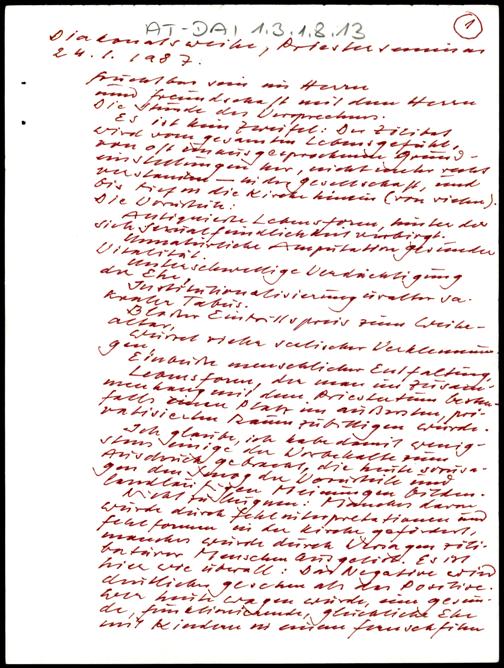 AT-DAI 1.3.1.8.13
1
Diakonatsweihe, Priesterseminar
24. 1. 1987.
Fruchtbar sein im Herrn
und Freundschaft mit dem Herrn
Die Stunde des Versprechens.
Es ist kein Zweifel: Der Zölibat
wird vom gesamten Lebensgefühl,
von oft unausgesprochenen Grund-
einstellungen her, nicht mehr recht
verstanden – in der Gesellschaft, und
bis tief in die Kirche hinein (von vielen).
Die Vorwürfe:
Antiquierte Lebensform, hinter der
sich Sexualfeindlichkeit verbirgt.
Unnatürliche Amputation gesunder
Vitalität.
Unterschwellige Verdächtigung
der Ehe,
Institutionalisierung uralter sa-
kraler Tabus.
Bloßer Eintrittspreis zum Weihe-
altar,
Wurzel vieler seelischer Verklemmun-
gen,
Einbuße menschlicher Entfaltung,
Lebensform, der man im Zusam-
menhang mit dem Priestertum besten-
falls einen Platz im äußersten, pri-
vatisierten Raum zubilligen würde.
Ich glaube, ich habe damit wenig-
stens einige der Vorbehalte zum
Ausdruck gebracht, die heute sozusa-
gen den Song der Vorwürfe und
landläufigen Meinungen bilden.
Nicht zu leugnen: Manches davon
wurde durch Fehlinterpretationen und
Fehlformen in der Kirche gefördert,
manches wurde durch Versagen zöli-
batärer Menschen ausgelöst. Es ist
hier wie überall: Das Negative wird
deutlicher gesehen als das Positive.
Wer heute wagen würde, eine gesun-
de, funktionierende, glückliche Ehe
mit Kindern in einem Fernsehfilm